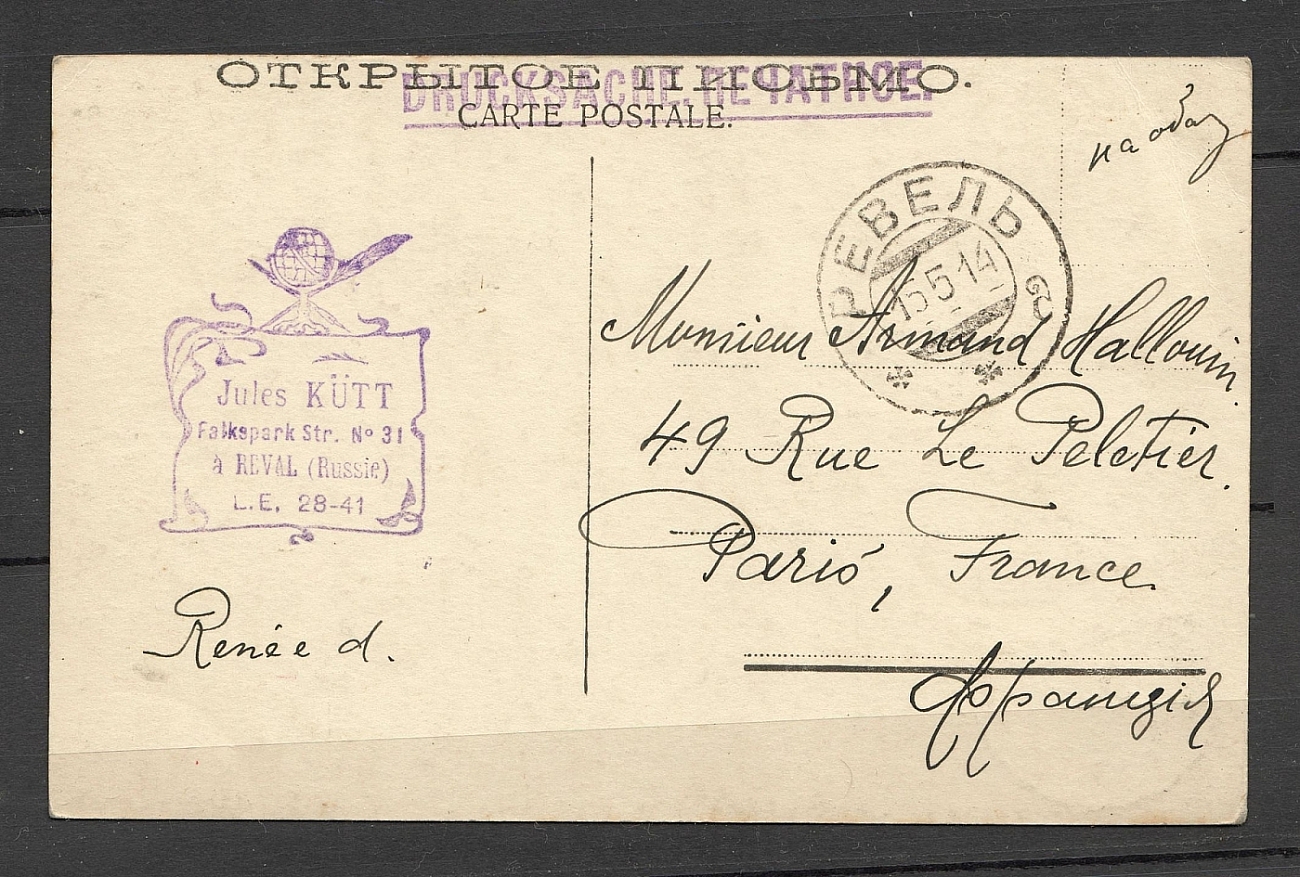 ОТКРЫТОЕ ПИСЬМО.
DRUCKSACHE. ПЕЧАТНОЕ.
CARTE POSTALE.
на обо
РЕВЕЛЬ
15.5.14
Jules KÜTT
Falkspark Str. № 31
à REVAL (Russie)
L.E. 28-41
Renée d.
Monsieur Armand Hallouin.
49 Rue Le Peletier.
Paris, France.
Франція